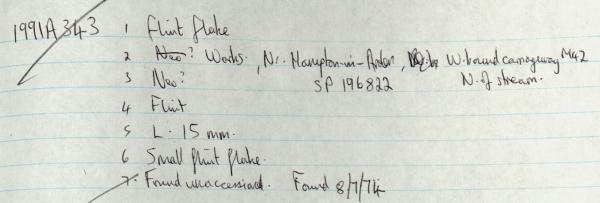 1991A343 1 Flint flake
2 Neo? Warks. , Nr. Hampton-in-Arden, W. bound carriageway M42
SP 196822 N. of stream.
3 Neo?
4 Flint
5 L. 15 mm.
6 Small flint flake.
7. Found unaccessioned. Found 8/7/74